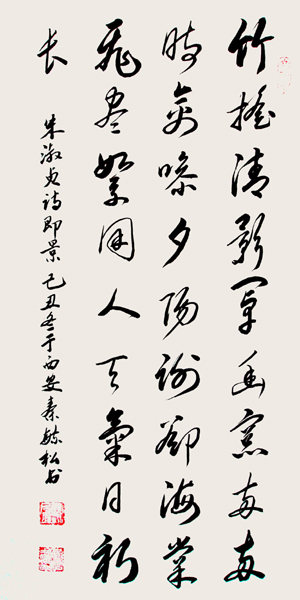 竹搖清影罩幽窗兩兩
時禽噪夕陽謝卻海棠
飛盡絮困人天氣日初
長
朱淑貞詩即景己丑冬于西安秦毓松書